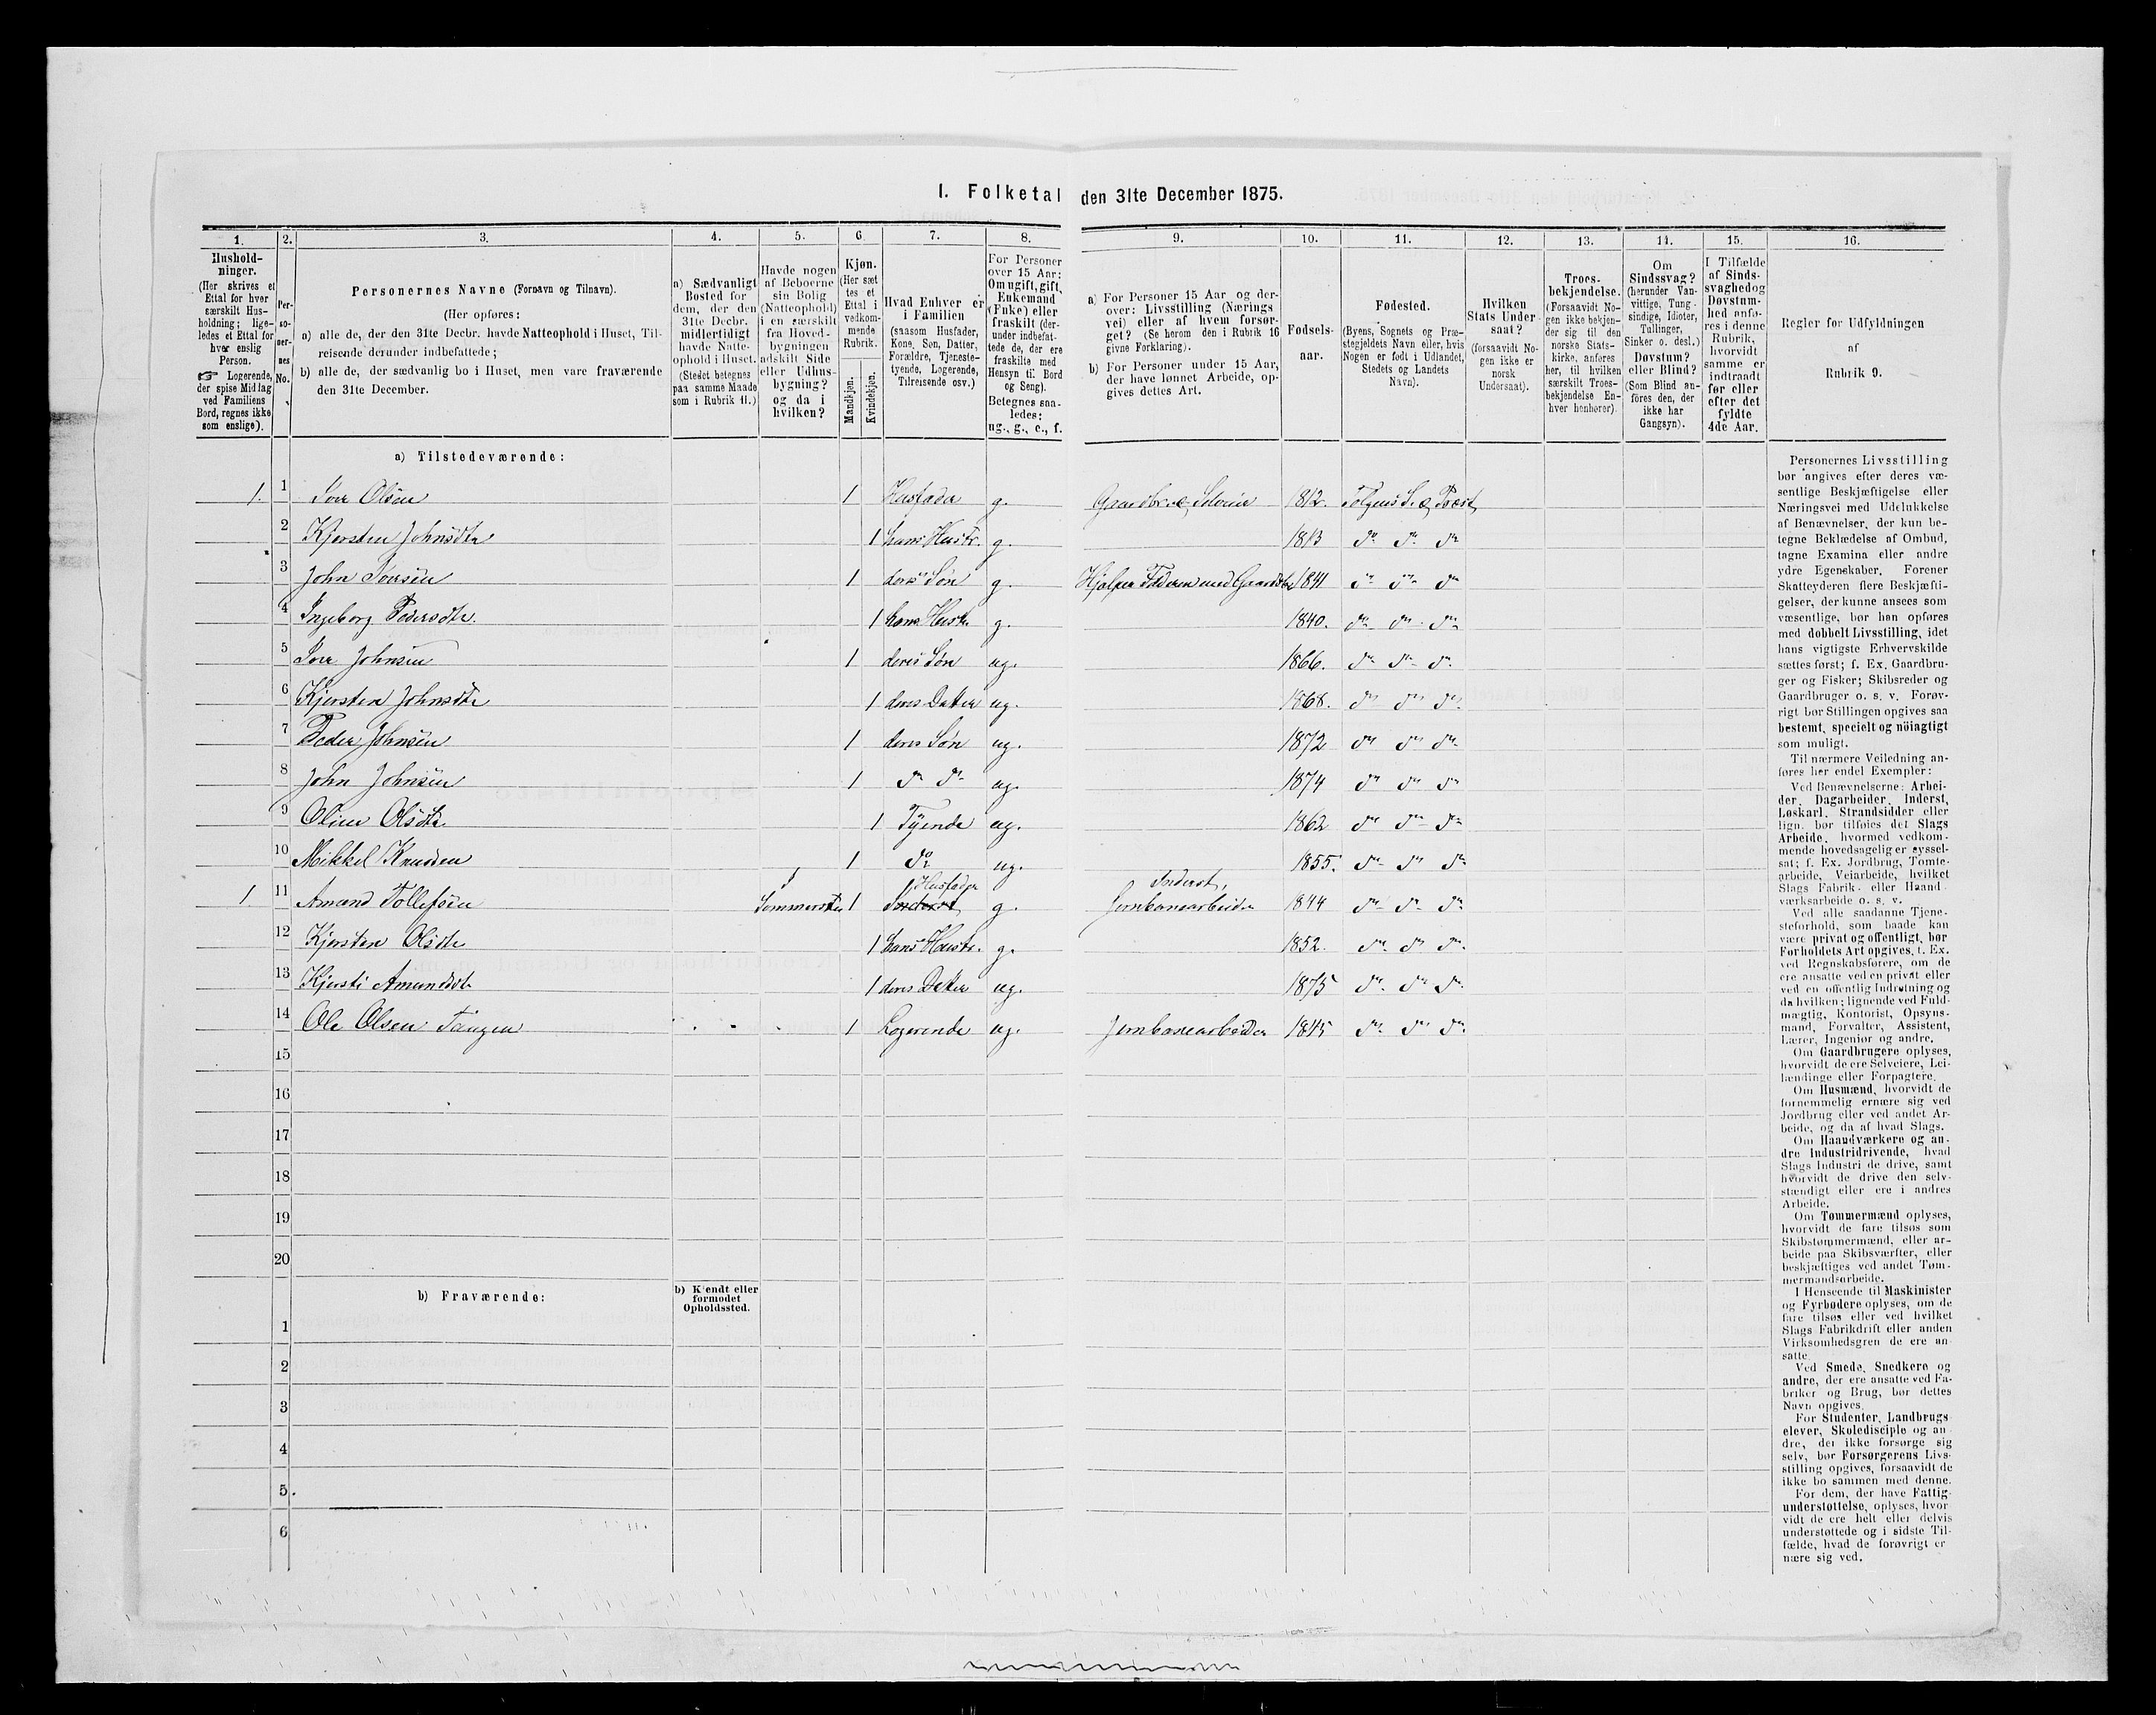 I. Folketal den 31te December 1875.
1. 2. 3. 4. 5. 6. 7. 8. 9. 10. 11. 12. 13. 14. 15. 16.
Hushold-
ninger.
(Her skrives et
Ettal for hver
særskilt Hus-
holdning; lige-
ledes et Ettal for
hver enslig
Person.
☞ Logerende,
der spise Middag
ved Familiens
Bord, regnes ikke
som enslige).
Per-
so-
ner-
nes
No.
Personernes Navne (Fornavn og Tilnavn).
(Her opføres:
a) alle de, der den 31te Decbr. havde Natteophold i Huset, Til-
reisende derunder indbefattede;
b) alle de, der sædvanlig bo i Huset, men vare fraværende
den 31te December.
a) Sædvanligt
Bosted for
dem, der den
31te Decbr.
midlertidigt
havde Natte-
ophold i Huset.
(Stedet betegnes
paa samme Maade
som i Rubrik 11.)
Havde nogen
af Beboerne
sin Bolig
(Natteophold)
i en særskilt
fra Hoved-
bygningen
adskilt Side
eller Udhus-
bygning?
og da i
hvilken?
Kjøn.
(Her sæt
tes et
Ettal i
vedkom-
mende
Rubrik.
Mandkjøn.
Kvindekjøn.
Hvad Enhver er
i Familien
(saasom Husfader,
Kone, Søn, Datter,
Forældre, Tjeneste-
tyende, Logerende,
Tilreisende osv.)
For Personer
over 15 Aar:
Om ugift, gift,
Enkemand
(Enke) eller
fraskilt (der-
under indbefat-
tede de, der ere
fraskilte med
Hensyn til Bord
og Seng).
Betegnes saa-
ledes:
ug., g., e., f.
a) For Personer 15 Aar og der-
over: Livsstilling (Nærings
vei) eller af hvem forsør-
get? (Se herom den i Rubrik 16
givne Forklaring).
b) For Personer under 15 Aar,
der have lønnet Arbeide, op-
gives dettes Art.
Fødsels-
aar.
Fødested.
(Byens, Sognets og Præ-
stegjeldets Navn eller, hvis
Nogen er født i Udlandet,
Stedets og Landets
Navn).
Hvilken
Stats Under-
saat?
(forsaavidt No-
gen ikke er
norsk
Undersaat).
Troes-
bekjendelse.
(Forsaavidt No-
gen ikke bekjen-
der sig til den
norske Stats-
kirke, anføres
her, til hvilken
særskilt Troes-
bekjendelse En-
hver henhører).
Om
Sindssvag?
(herunder Van-
vittige, Tung-
sindige, Idioter,
Tullinger,
Sinker o. desl.)
Døvstum?
eller Blind?
(Som Blind an-
föres den, der
ikke har
Gangsyn).
I Tilfælde
af Sinds-
svaghed og
Døvstum-
hed anfø-
res i denne
Rubrik,
hvorvidt
samme er
indtraadt
før eller
efter det
fyldte
4de Aar.
Regler for Udfyldningen
af
Rubrik 9.
a) Tilstedeværende:
1. 1 Iver Olsen 1 Husfader g. Gaardbr. & Seloeier 1812. Tolgens S. & Præst.
2 Kjersten Johnsdtr 1 hans Hustr. g. 1813 do do do
3 John Iversen 1 deres Søn g. Hjælper Faderen med Gaardsbr 1841 do do do
4 Ingeborg Pedersdtr. 1 hans Hustr g. 1840. do do do
5 Iver Johnsen 1 deres Søn ug. 1866. do do do
6 Kjersten Johnsdtr 1 deres Datter ug. 1868. do do do
7 Peder Johnsen 1 deres Søn ug. 1872 do do do
8 John Johnsen 1 do do ug. 1874 do do do
9 Oline Olsdtr. 1 Tyende ug. 1862 do do do
10 Mikkel Knudsen 1 do ug. 1855. do do do
Husfader Inderst,
1 11 Amund Tollefsen 1 Inderst g. Jernbanearbeider 1844 do do do
12 Kjersten Olsdtr 1 hans Hustr. g. 1852. do do do
13 Kjersti Amundsdtr 1 deres Datter ug. 1875 do do do
14 Ole Olsen Tangen 1 Logerende ug. Jernbanearbeider 1845 do do do
15
16
17
18
19
20
b) Fraværende:
b) Kjendt eller
formodet
Opholdssted.
1
2
3
4
5
6
Personernes Livsstilling
bør angives efter deres væ-
sentlige Beskjæftigelse eller
Næringsvei med Udelukkelse
af Benævnelser, der kun be-
tegne Beklædelse af Ombud,
tagne Examina eller andre
ydre Egenskaber. Forener
Skatteyderen flere Beskjæfti-
gelser, der kunne ansees som
væsentlige, bør han opføres
med dobbelt Livsstilling, idet
hans vigtigste Erhvervskilde
sættes først; f. Ex. Gaardbru-
ger og Fisker; Skibsreder og
Gaardbruger o. s. v. Forøv-
rigt bør Stillingen opgives saa
bestemt, specielt og nöiagtigt
som muligt.
Til nærmere Veiledning an-
føres her endel Exempler:
Ved Benævnelserne: Arbei-
der, Dagarbeider, Inderst,
Løskarl, Strandsidder eller
lign. bør tilføies det Slags
Arbeide, hvormed vedkom-
mende hovedsagelig er syssel-
sat; f. Ex. Jordbrug, Tomte-
arbeide, Veiarbeide, hvilket
Slags Fabrik- eller Haand-
værksarbeide o. s. v.
Ved alle saadanne Tjene-
steforhold, som baade kan
være privat og offentligt, bør
Forholdets Art opgives, t. Ex.
ved Regnskabsførere, om de
ere ansatte ved en privat eller
ved en offentlig Indretning og
da hvilken; lignende ved Fuld-
mægtig, Kontorist, Opsyns-
mand, Forvalter, Assistent,
Lærer, Ingeniør og andre.
Om Gaardbrugere oplyses,
hvorvidt de ere Selveiere, Lei-
lændinge eller Forpagtere.
Om Husmænd, hvorvidt de
fornemmelig ernære sig ved
Jordbrug eller ved andet Ar-
beide, og da af hvad Slags.
Om Haandværkere og an-
dre Industridrivende, hvad
Slags Industri de drive, samt
hvorvidt de drive den selv-
stændigt eller ere i andres
Arbeide.
Om Tømmermænd oplyses,
hvorvidt de fare tilsøs som
Skibstømmermænd, eller ar-
beide paa Skibsværfter, eller
beskjæftiges ved andet Tøm-
mermandsarbeide.
I Henseende til Maskinister
og Fyrbødere oplyses, om de
fare tilsøs eller ved hvilket
Slags Fabrikdrift eller anden
Virksomhedsgren de ere an-
satte.
Ved Smede, Snedkere og
andre, der ere ansatte ved Fa-
briker og Brug, bør dettes
Navn opgives.
For Studenter, Landbrugs
elever, Skoledisciple og an-
dre, der ikke forsørge sig
selv, bør Forsørgerens Livs-
stilling opgives, forsaavidt de
ikke bo sammen med denne.
For dem, der have Fattig-
understøttelse, oplyses, hvor
vidt de ere helt eller delvis
understøttede og i sidste Til-
fælde, hvad de forøvrigt er
nære sig ved.